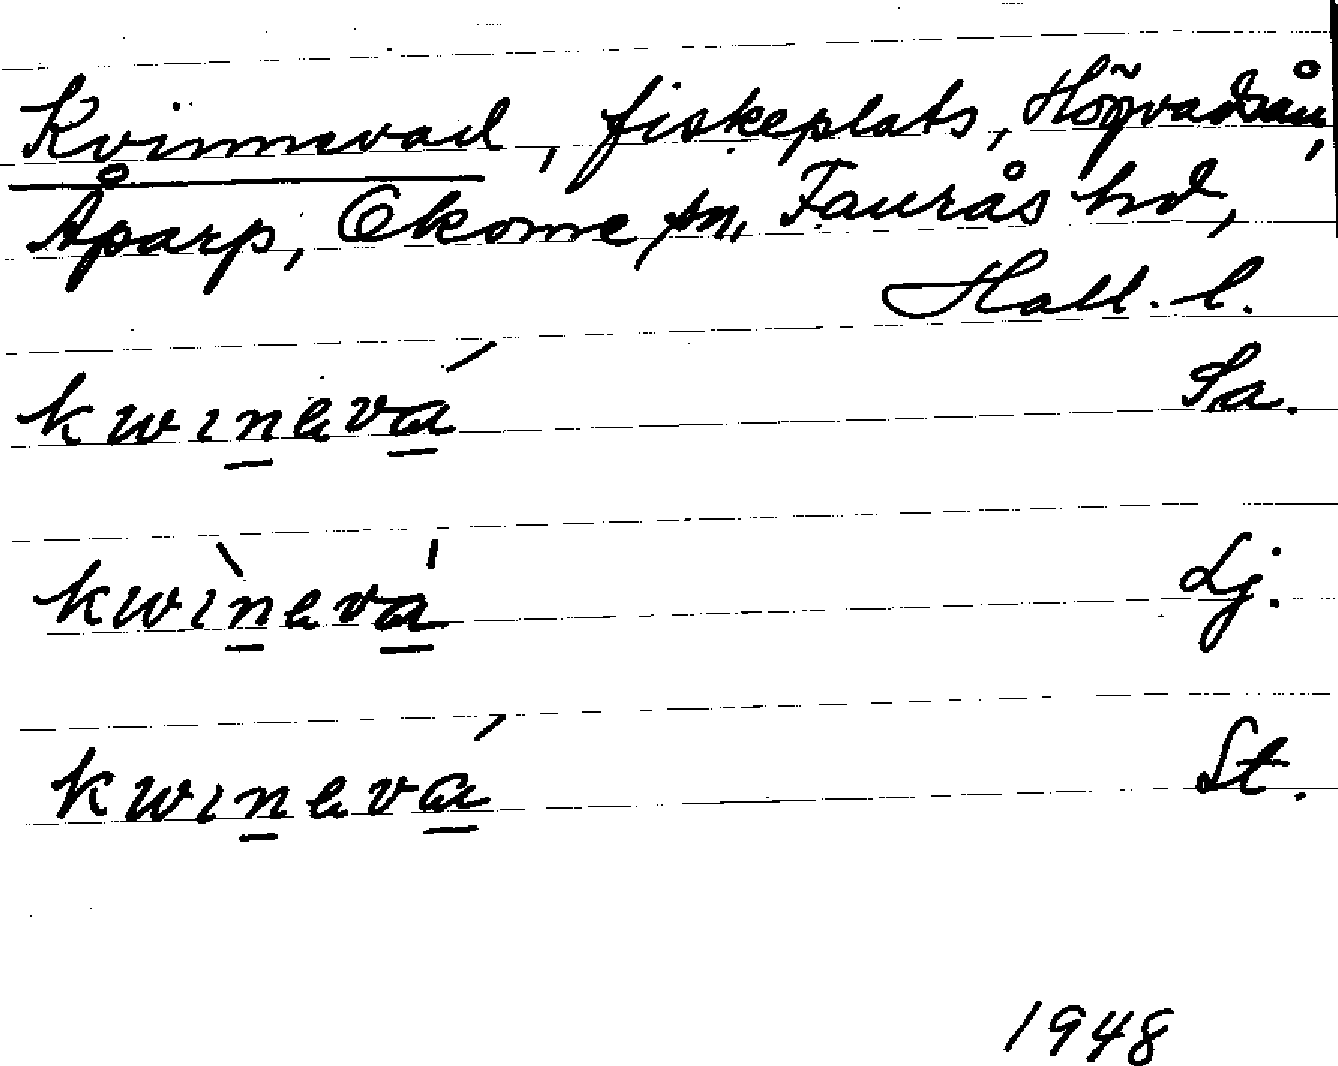 Kvinnevad, fiskeplats, Högvadsån,
Åparp, Okome sn, Faurås hd,
Hall. l.
kwinevá Sa.
kwìnevá Lj.
kwinevá St.
1948